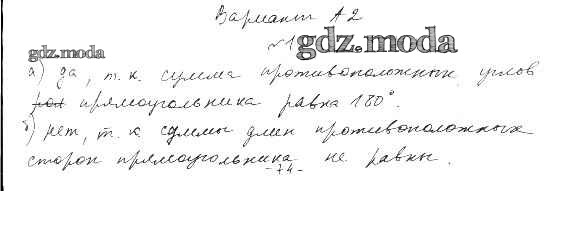 Вариант А2
№1 gdz.moda
gdz.moda
а) да, т.к. сумма противоположных углов
прямоугольника равна 180°.
б) нет, т.к суммы длин противоположных
сторон прямоугольника не равны.
-74-